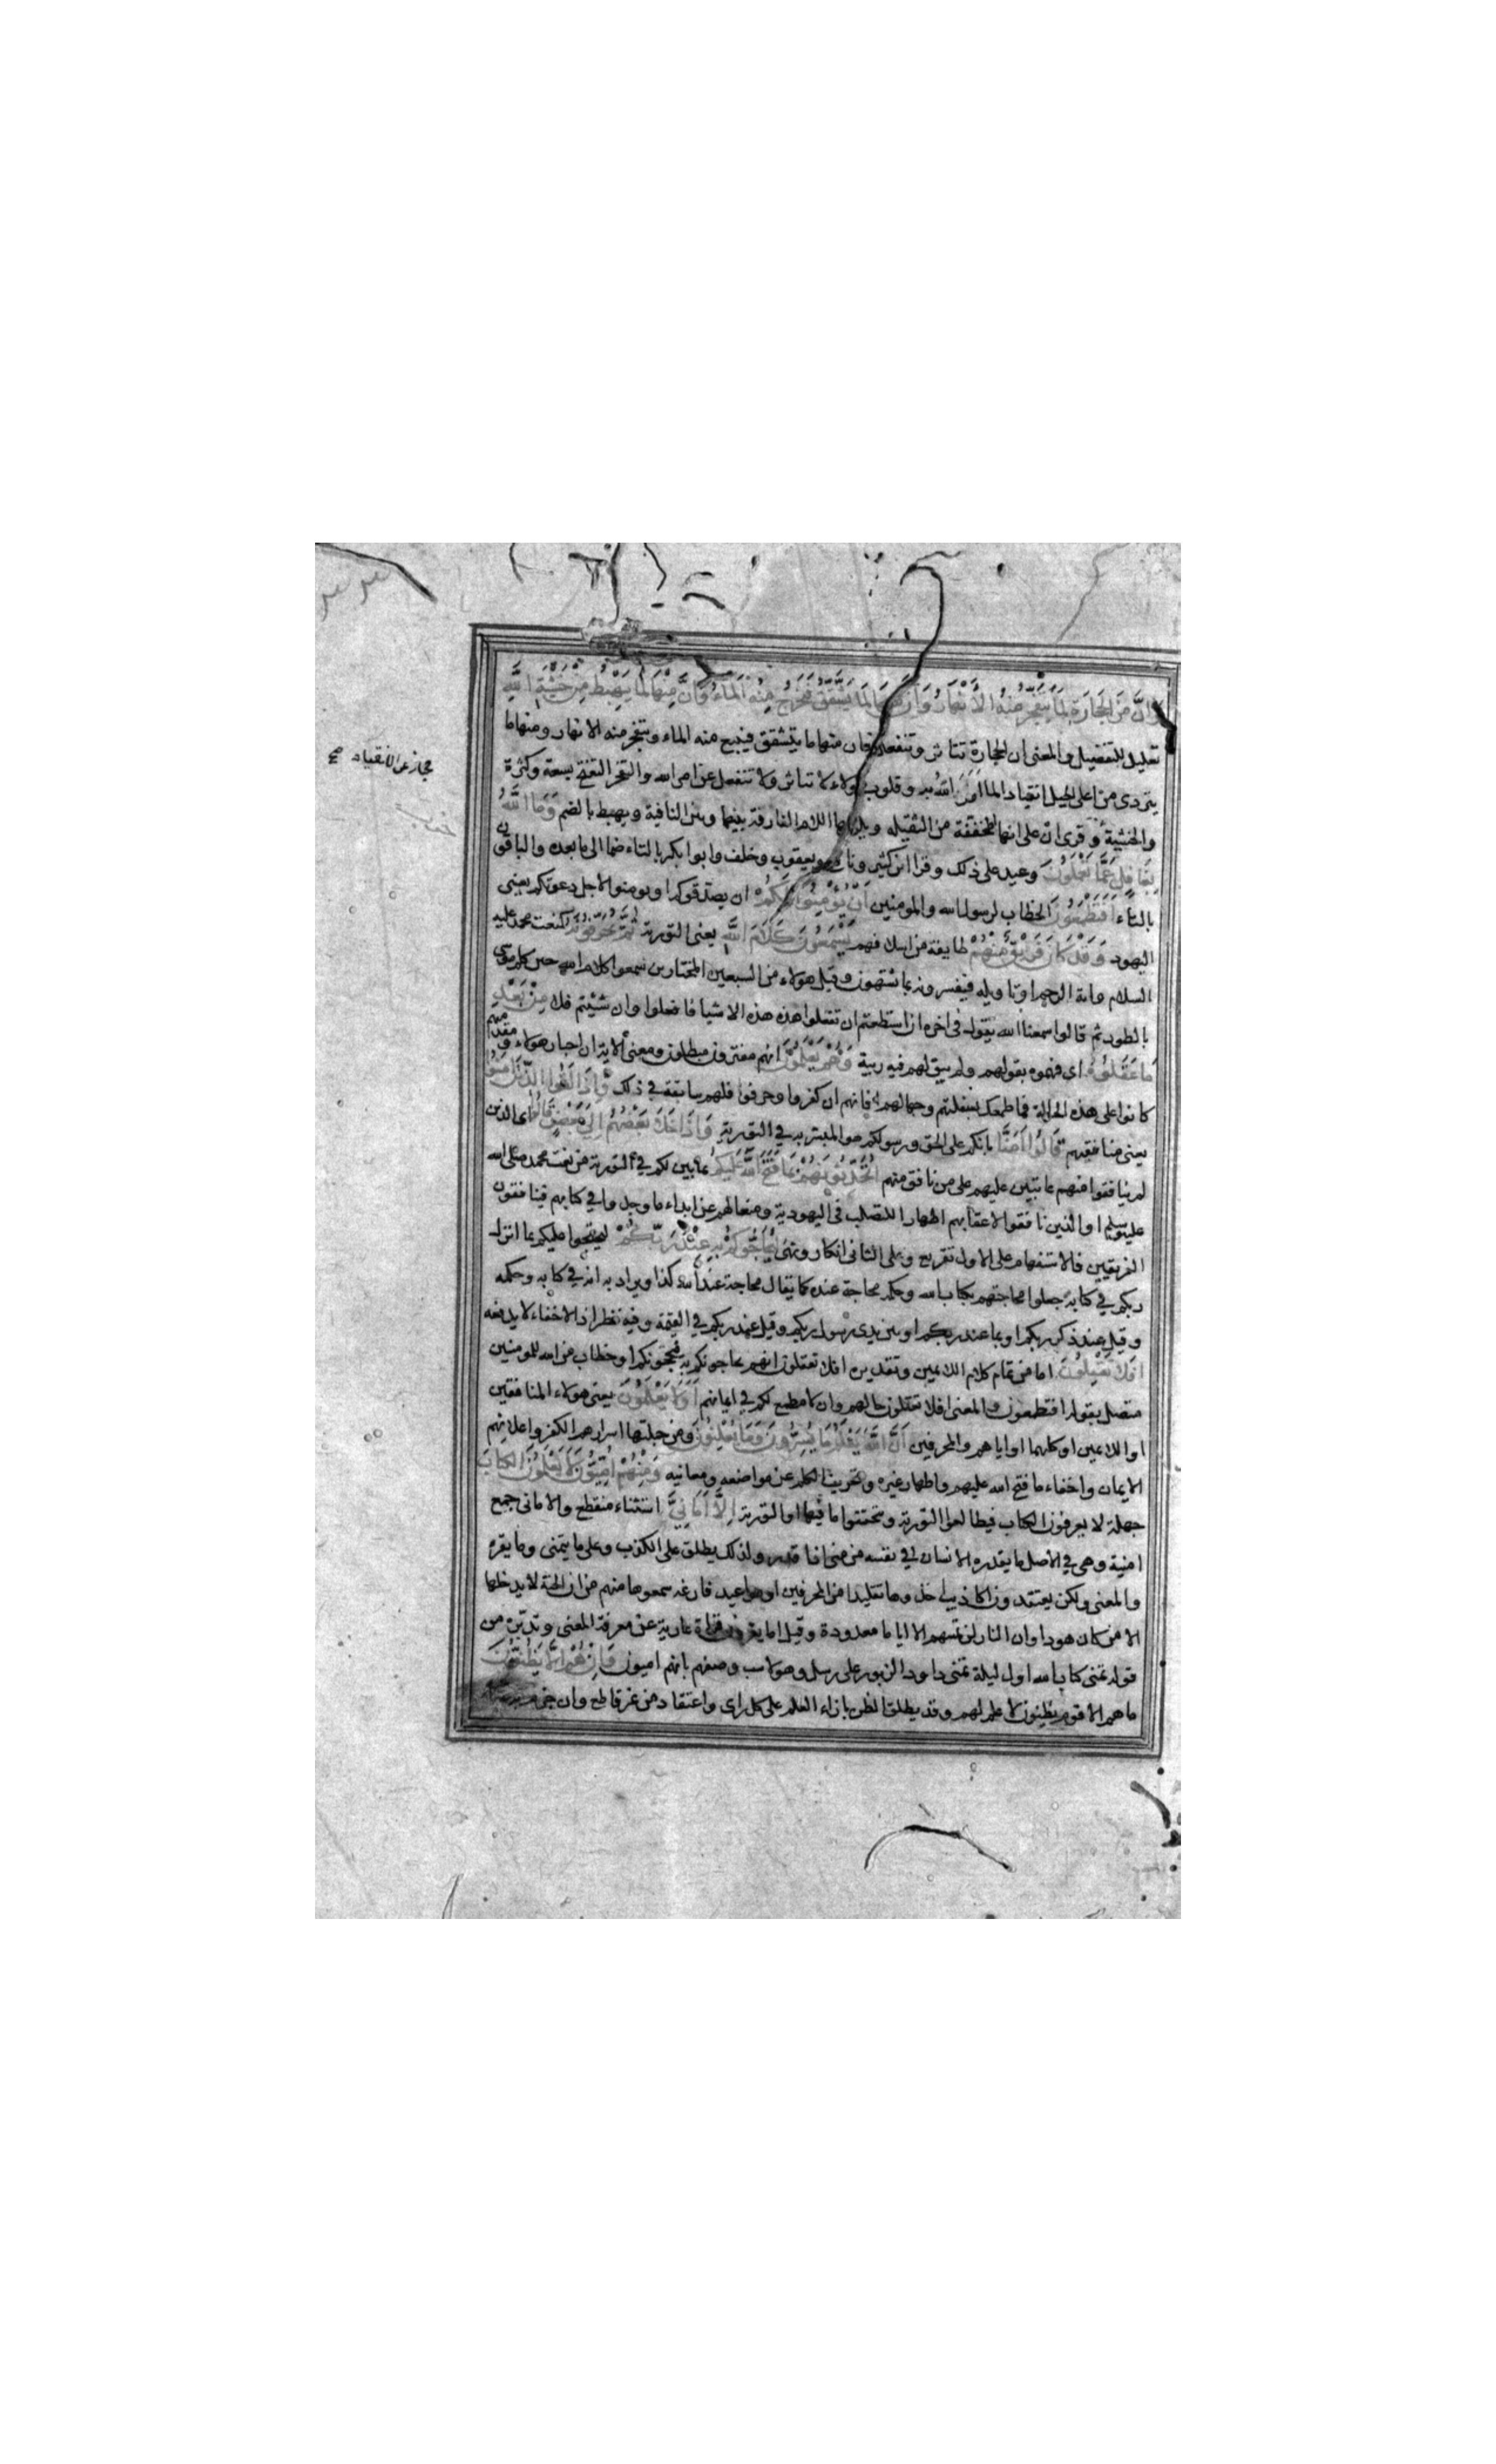 وَاِنَّ مِنَ الحِجَارَةِ لَمَا يَتَفَجَّرُ مِنْهُ الْاَنْهَارُ وَاِنَّ مِنْهَا لَمَا يَشَّقَّقُ فَيَخْرُجُ مِنْهُ الْمَاءُ وَاِنَّ مِنْهَا لَمَا يَهْبِطُ مِنْ خَشْيَةِ اللّٰهِ
تعليل للتفضيل والمعنى ان الحجارة تتاثر وتنفعل فان منها ما يتشقق فينبع منه الماء وتتفجر منه الانهار ومنها ما
يتردى من اعلى الجبل انقيادا لما اراد الله به وقلوب هولاء لا تتاثر ولا تنفعل عن امر الله والتفجر التفتح بسعة وكثرة
مجاز عن الانقياد صح
والخشية وقرئ انّ على انها المخففة من الثقيلة ويلزمها اللام الفارقة بينها وبين النافية ويهبط بالضم وَمَا اللّٰهُ
بِغَافِلٍ عَمَّا تَعْمَلُونَ وعيد على ذلك وقرا ابن كثير ونافع ويعقوب وخلف وابو بكر بالتاء ضما الى ما بعده والباقون
بالتاء اَفَتَطْمَعُونَ الخطاب لرسول الله والمومنين اَنْ يُؤْمِنُوا لَكُمْ ان يصدقوكم او يومنوا لاجل دعوتكم يعنى
اليهود وَقَدْ كَانَ فَرِيْقٌ مِنْهُمْ طايفة من اسلافهم يَسْمَعُونَ كَلَامَ اللّٰهِ يعنى التورية ثُمَّ يُحَرِّفُونَهُ كنعت محمد عليه
السلام واية الرجم او تاويله فيفسرونه بما يشتهون وقيل هولاء من السبعين المختارين سمعوا كلام الله حين كلم موسى
بالطور ثم قالوا سمعنا الله يقول في اخره ان استطعتم ان تفعلوا هذه هذه الاشيا فافعلوا وان شيتم فلا مِنْ بَعْدِ
مَا عَقَلُوهُ اى فهموه بقولهم ولم يبق لهم فيه ريبة وَهُمْ يَعْلَمُونَ انهم مفترون مبطلون ومعنى الاية ان احبار هولاء ومقدميهم
كانوا على هذه الحالة فما طمعك بسفلتهم وجهالهم وانهم ان كفروا وحرفوا فلهم سابقة في ذلك وَاِذَا لَقُوا الَّذِيْنَ اٰمَنُوا
يعنى منافقيهم قَالُوا اٰمَنَّا بانكم على الحق ورسولكم هو المبشر به في التورية وَاِذَا خَلَا بَعْضُهُمْ اِلَى بَعْضٍ قَالُوا اى الذين
لم ينافقوا منهم عاتبين عليهم على من نافق منهم اَتُحَدِّثُونَهُمْ بِمَا فَتَحَ اللّٰهُ عَلَيْكُمْ بما بين لكم في التورية من نعت محمد صلى الله
عليه وسلم او الذين نافقوا لاعقابهم اظهارا للتصلب في اليهودية ومنعا لهم عن ابداء ما وجدوا في كتابهم فينافقون
الفريقين فالاستفهام على الاول تقريع وعلى الثانى انكار ونهى لِيُحَاجُّوكُمْ بِهِ عِنْدَ رَبِّكُمْ ليحتجوا عليكم بما انزل
ربكم في كتابه جعلوا محاجتهم بكتاب الله وحكمه محاجة عنده كما يقال محاجة عند الله كذا ويراد به انه في كتابه وحكمه
وقيل عند ذكر ربكم او بما عند ربكم او بين يدى رسول ربكم وقيل عند ربكم في القيمة وفيه نظر اذ الاخفاء لا يدفعه
اَفَلَا تَعْقِلُونَ اما من تمام كلام اللائمين وتقديره افلا تعقلون انهم يحاجونكم به فيحجونكم او خطاب من الله للمومنين
متصل بقوله افتطمعون والمعنى افلا تعقلون حالهم وان لا مطمع لكم في ايمانهم اَوَلَا يَعْلَمُونَ يعنى هولاء المنافقين
او اللائمين او كليهما او اياهم والمحرفين اَنَّ اللّٰهَ يَعْلَمُ مَا يُسِرُّونَ وَمَا يُعْلِنُونَ ومن جملتها اسرارهم الكفر واعلانهم
الايمان واخفاء ما فتح الله عليهم واظهار غيره وتحريف الكلم عن مواضعه ومعانيه وَمِنْهُمْ اُمِّيُّونَ لَا يَعْلَمُونَ الكِتَابَ
جهلة لا يعرفون الكتاب فيطالعوا التورية ويتحققوا ما فيها او التورية اِلَّا اَمَانِيَّ استثناء منقطع والامانى جمع
امنية وهى في الاصل ما يقدره الانسان في نفسه من منى اذا قدر ولذلك يطلق على الكذب وعلى ما يتمنى وما يقرء
والمعنى ولكن يعتقدون اكاذيب اخذوها تقليدا من المحرفين او مواعيد فارغه سمعوها منهم من ان الجنة لا يدخلها
الا من كان هودا وان النار لن تمسهم الا اياما معدودة وقيل الا ما يقرون قراءة عارية عن معرفة المعنى وتدبره من
قوله تمنى كتاب الله اول ليلة تمنى داود الزبور على رسل وهو لا يناسب وصفهم بانهم اميون وَاِنْ هُمْ اِلَّا يَظُنُّونَ
ما هم الا قوم يظنون لا علم لهم وقد يطلق الظن بازاء العلم على كل راى واعتقاد من غير قاطع وان جزم به